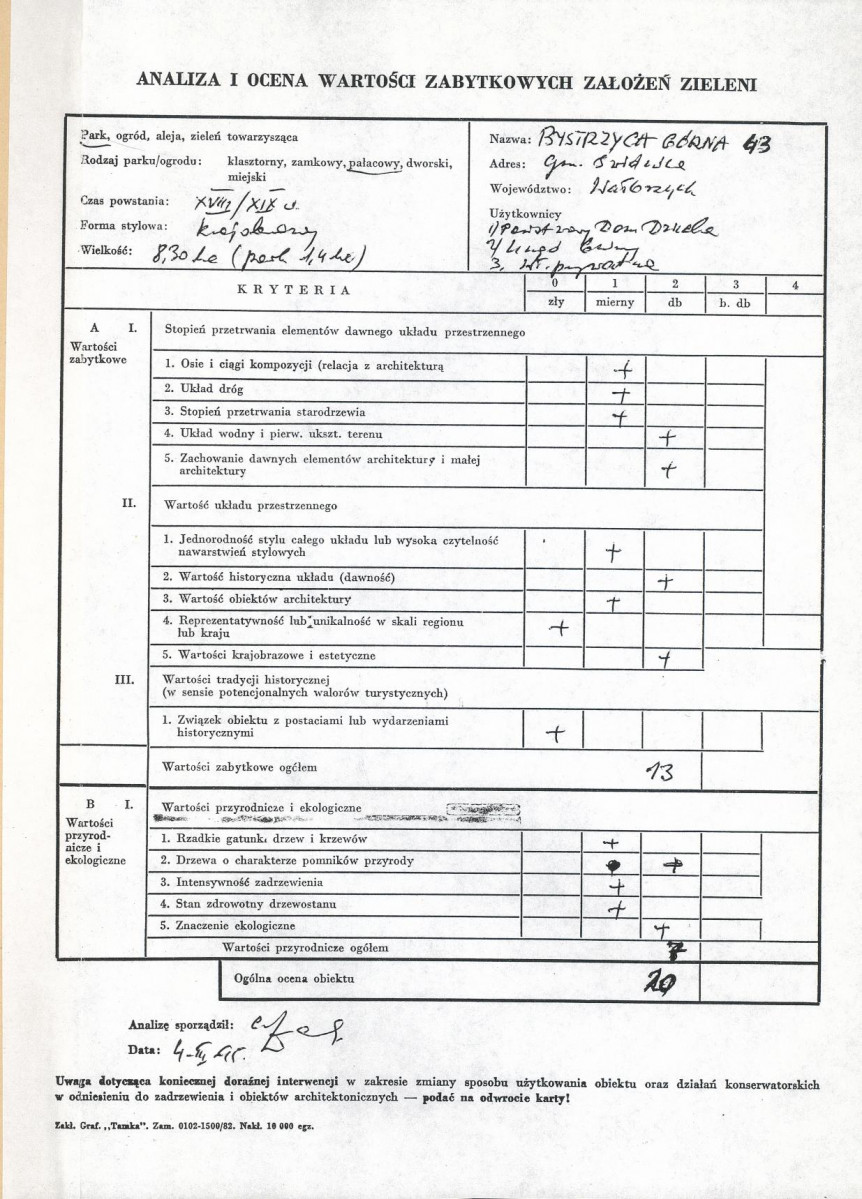 ANALIZA I OCENA WARTOŚCI ZABYTKOWYCH ZAŁOŻEŃ ZIELENI
Park, ogród, aleja, zieleń towarzysząca
Rodzaj parku/ogrodu: klasztorny, zamkowy, pałacowy, dworski,
miejski
Czas powstania: XVIII/XIX w.
Forma stylowa: krajobrazowy
Wielkość: 8,30 ha (park 1,4 ha)
Nazwa: BYSTRZYCA GÓRNA 43
Adres: Gm. Świdnica
Województwo: Wałbrzych
Użytkownicy
1) Państwowy Dom Dziecka
2) Urząd Gminy
3, wł. prywatna
KRYTERIA
0 1 2 3 4
zły mierny db b. db
A I. Stopień przetrwania elementów dawnego układu przestrzennego
Wartości
zabytkowe
1. Osie i ciągi kompozycji (relacja z architekturą +
2. Układ dróg +
3. Stopień przetrwania starodrzewia +
4. Układ wodny i pierw. ukszt. terenu +
5. Zachowanie dawnych elementów architektury i małej
architektury +
II. Wartość układu przestrzennego
1. Jednorodność stylu całego układu lub wysoka czytelność
nawarstwień stylowych +
2. Wartość historyczna układu (dawność) +
3. Wartość obiektów architektury +
4. Reprezentatywność lub unikalność w skali regionu
lub kraju +
5. Wartości krajobrazowe i estetyczne +
III. Wartości tradycji historycznej
(w sensie potencjonalnych walorów turystycznych)
1. Związek obiektu z postaciami lub wydarzeniami
historycznymi +
Wartości zabytkowe ogółem 13
B I. Wartości przyrodnicze i ekologiczne
Wartości
przyrod-
nicze i
ekologiczne
1. Rzadkie gatunki drzew i krzewów +
2. Drzewa o charakterze pomników przyrody +
3. Intensywność zadrzewienia +
4. Stan zdrowotny drzewostanu +
5. Znaczenie ekologiczne +
Wartości przyrodnicze ogółem 7
Ogólna ocena obiektu 20
Analizę sporządził:
Data:
Uwaga dotycząca koniecznej doraźnej interwencji w zakresie zmiany sposobu użytkowania obiektu oraz działań konserwatorskich
w odniesieniu do zadrzewienia i obiektów architektonicznych — podać na odwrocie karty!
Zakł. Graf. „Tamka". Zam. 0102-1500/82. Nakł. 10 000 egz.